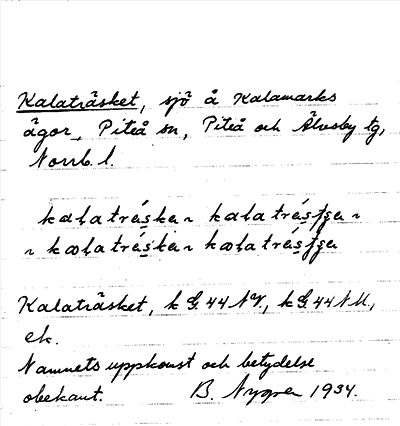 Kalaträsket, sjö å Kalamarks
ägor, Piteå sn, Piteå och Älvsby tg,
Norrb. l.
kalatrȧskan kalatrȧsʃgan
kalatrȧskan kalatrȧsʃga
Kalaträsket, k G. 44 NV, k G. 44 NU,
ek.
Namnets uppkomst och betydelse
obekant. B. Nygren 1934.